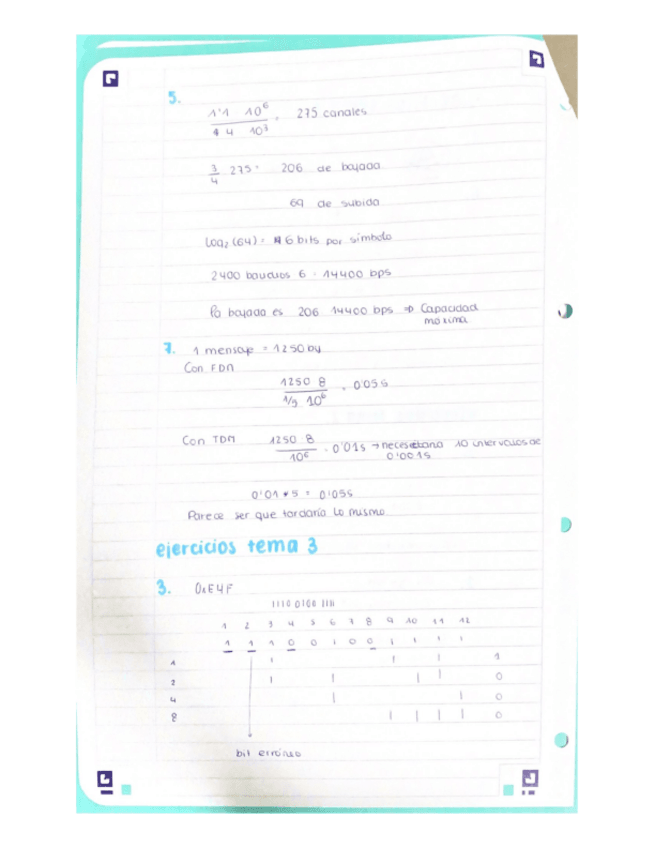 5.
1'1 10⁶ / 4 10³ = 275 canales
3/4 275 = 206 de bajada
69 de subida
Log₂(64) = 6 bits por simbolo
2400 baudios 6 = 14400 bps
la bajada es 206 14400 bps ⇒ Capacidad
máxima
7. 1 mensaje = 1250 by
Con FDM
1250 8 / 1/5 10⁶ = 0'05 s
Con TDM 1250 8 / 10⁶ = 0'01s → necesitaria 10 intervalos de
0'001s
0'01 * 5 = 0'05s
Parece ser que tardaría lo mismo
ejercicios tema 3
3. 0xE4F
1110 0100 1111
1 2 3 4 5 6 7 8 9 10 11 12
1 1 1 0 0 1 0 0 1 1 1 1
1 1 1 1 1
2 1 1 1 1 0
4 1 1 0
8 1 1 1 1 0
bit erróneo